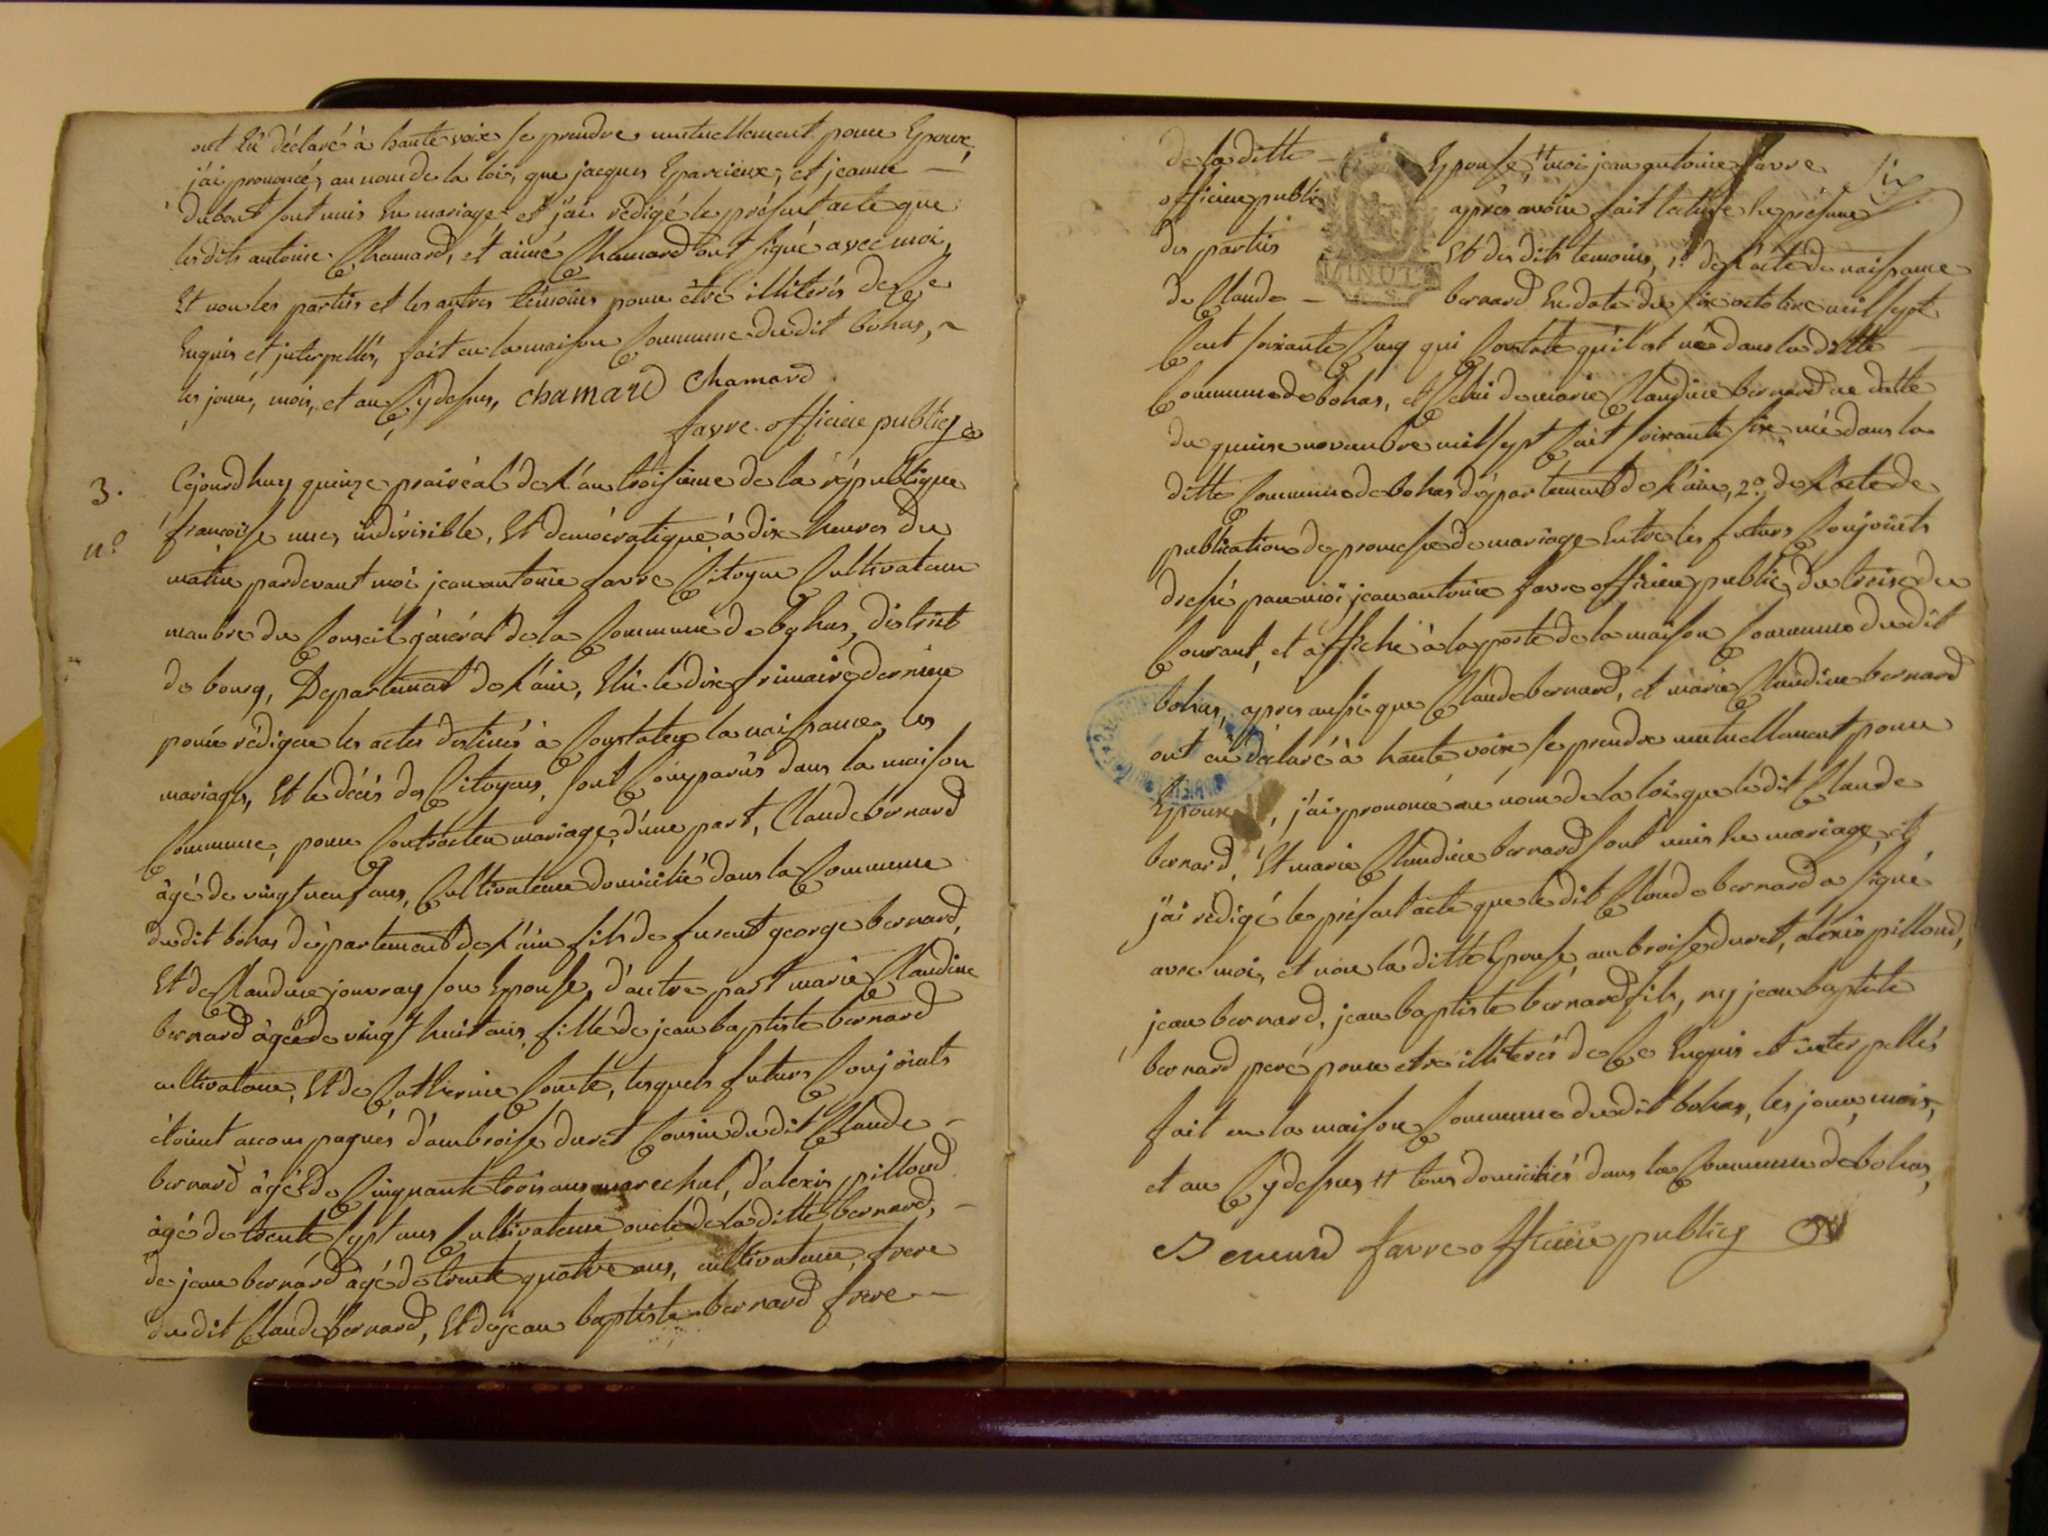 ont Eû déclaré à haute voix se prendre mutuellement pour Epoux,
j'ai prononcé, au nom de la loi, que jacques Eparcieux, et jeanne
dubout sont unis En mariage et j'ai rédigé le présent acte que
les dits antoine Chamard, et aimé Chamard ont signé avec moi,
Et non les partis et les autres témoins pour être illiterés de Ce
Enquis et interpellés, fait en la maison Commune du dit bohas,
les jour, mois, et an Cydessus, chamard Chamard
favre officier public
3. Cejourdhuy quinze prairéal de l'an troisieme de la république
n.º françoise une, indivisible, Et démocratique à dix heures du
matin pardevant moi jean antoine favre Citoyen Cultivateur
membre du Conseil général de la Commune de bohas, district
de bourg, Departement de l'ain, Elu le dix frimaire dernier
pour rédiger les actes destinés à Constater la naissance, les
mariages, Et le décés des Citoyens, sont Comparûs dans la maison
Commune, pour Contracter mariage, d'une part, Claude bernard
âgé de vingt neuf ans, Cultivateur domicilié dans la Commune
du dit bohas département de l'ain fils de furent george bernard,
Et de Claudine jouvray son Epouse, d'autre part marie Claudine
bernard âgée de vingt huit ans, fille de jean baptiste bernard
cultivateur, Et de Catherine Comte, lesquels futurs Conjoints
étoient accompagnés d'ambroise duret Cousin du dit Claude
bernard âgé de Cinquante trois ans marechal, d'alexis pilloud
âgé de trente sept ans Cultivateur oncle de la ditte bernard,
de jean bernard âgé de trente quatre ans, cultivateur, frere
du dit Claude bernard, Et de jean baptiste bernard frere
de la ditte Epouse, # moi jean antoine favre six
officier public après avoir fait lecture En présence
des partis Et des dits temoins, 1.º de l'acte de naissance
MINUTE
de Claude bernard En date du six octobre mil sept
Cent soixante Cinq qui Constate qu'il est né dans la ditte
Commune de bohas, et Celui de marie Claudine bernard en datte
du quinze novembre mil sept Cent soixante six, née dans la
ditte Commune de bohas département de l'ain, 2.º de l'acte de
publication de promesse de mariage Entre les futurs Conjoints
dressé par moi jean antoine favre officier public du treize du
Courant, et affiché à la porte de la maison Commune du dit
bohas, apres aussi que Claude bernard, et marie Claudine bernard
ont eû déclaré à haute voix se prendre mutuellement pour
Epoux, j'ai prononcé au nom de la loi que le dit Claude
bernard, Et marie Claudine bernard sont unis En mariage, et
j'ai rédigé le présent acte que le dit Claude bernard a signé
avec moi, et non la ditte Epouse, ambroise duret, alexis pilloud,
jean bernard, jean baptiste bernard fils, ny jean baptiste
bernard peré pour etre illiterés de Ce Enquis et interpellés
fait en la maison Commune du dit bohas, les jour, mois,
et an Cydessus # tous domiciliés dans la Commune de bohas,
Bernard favre officier public